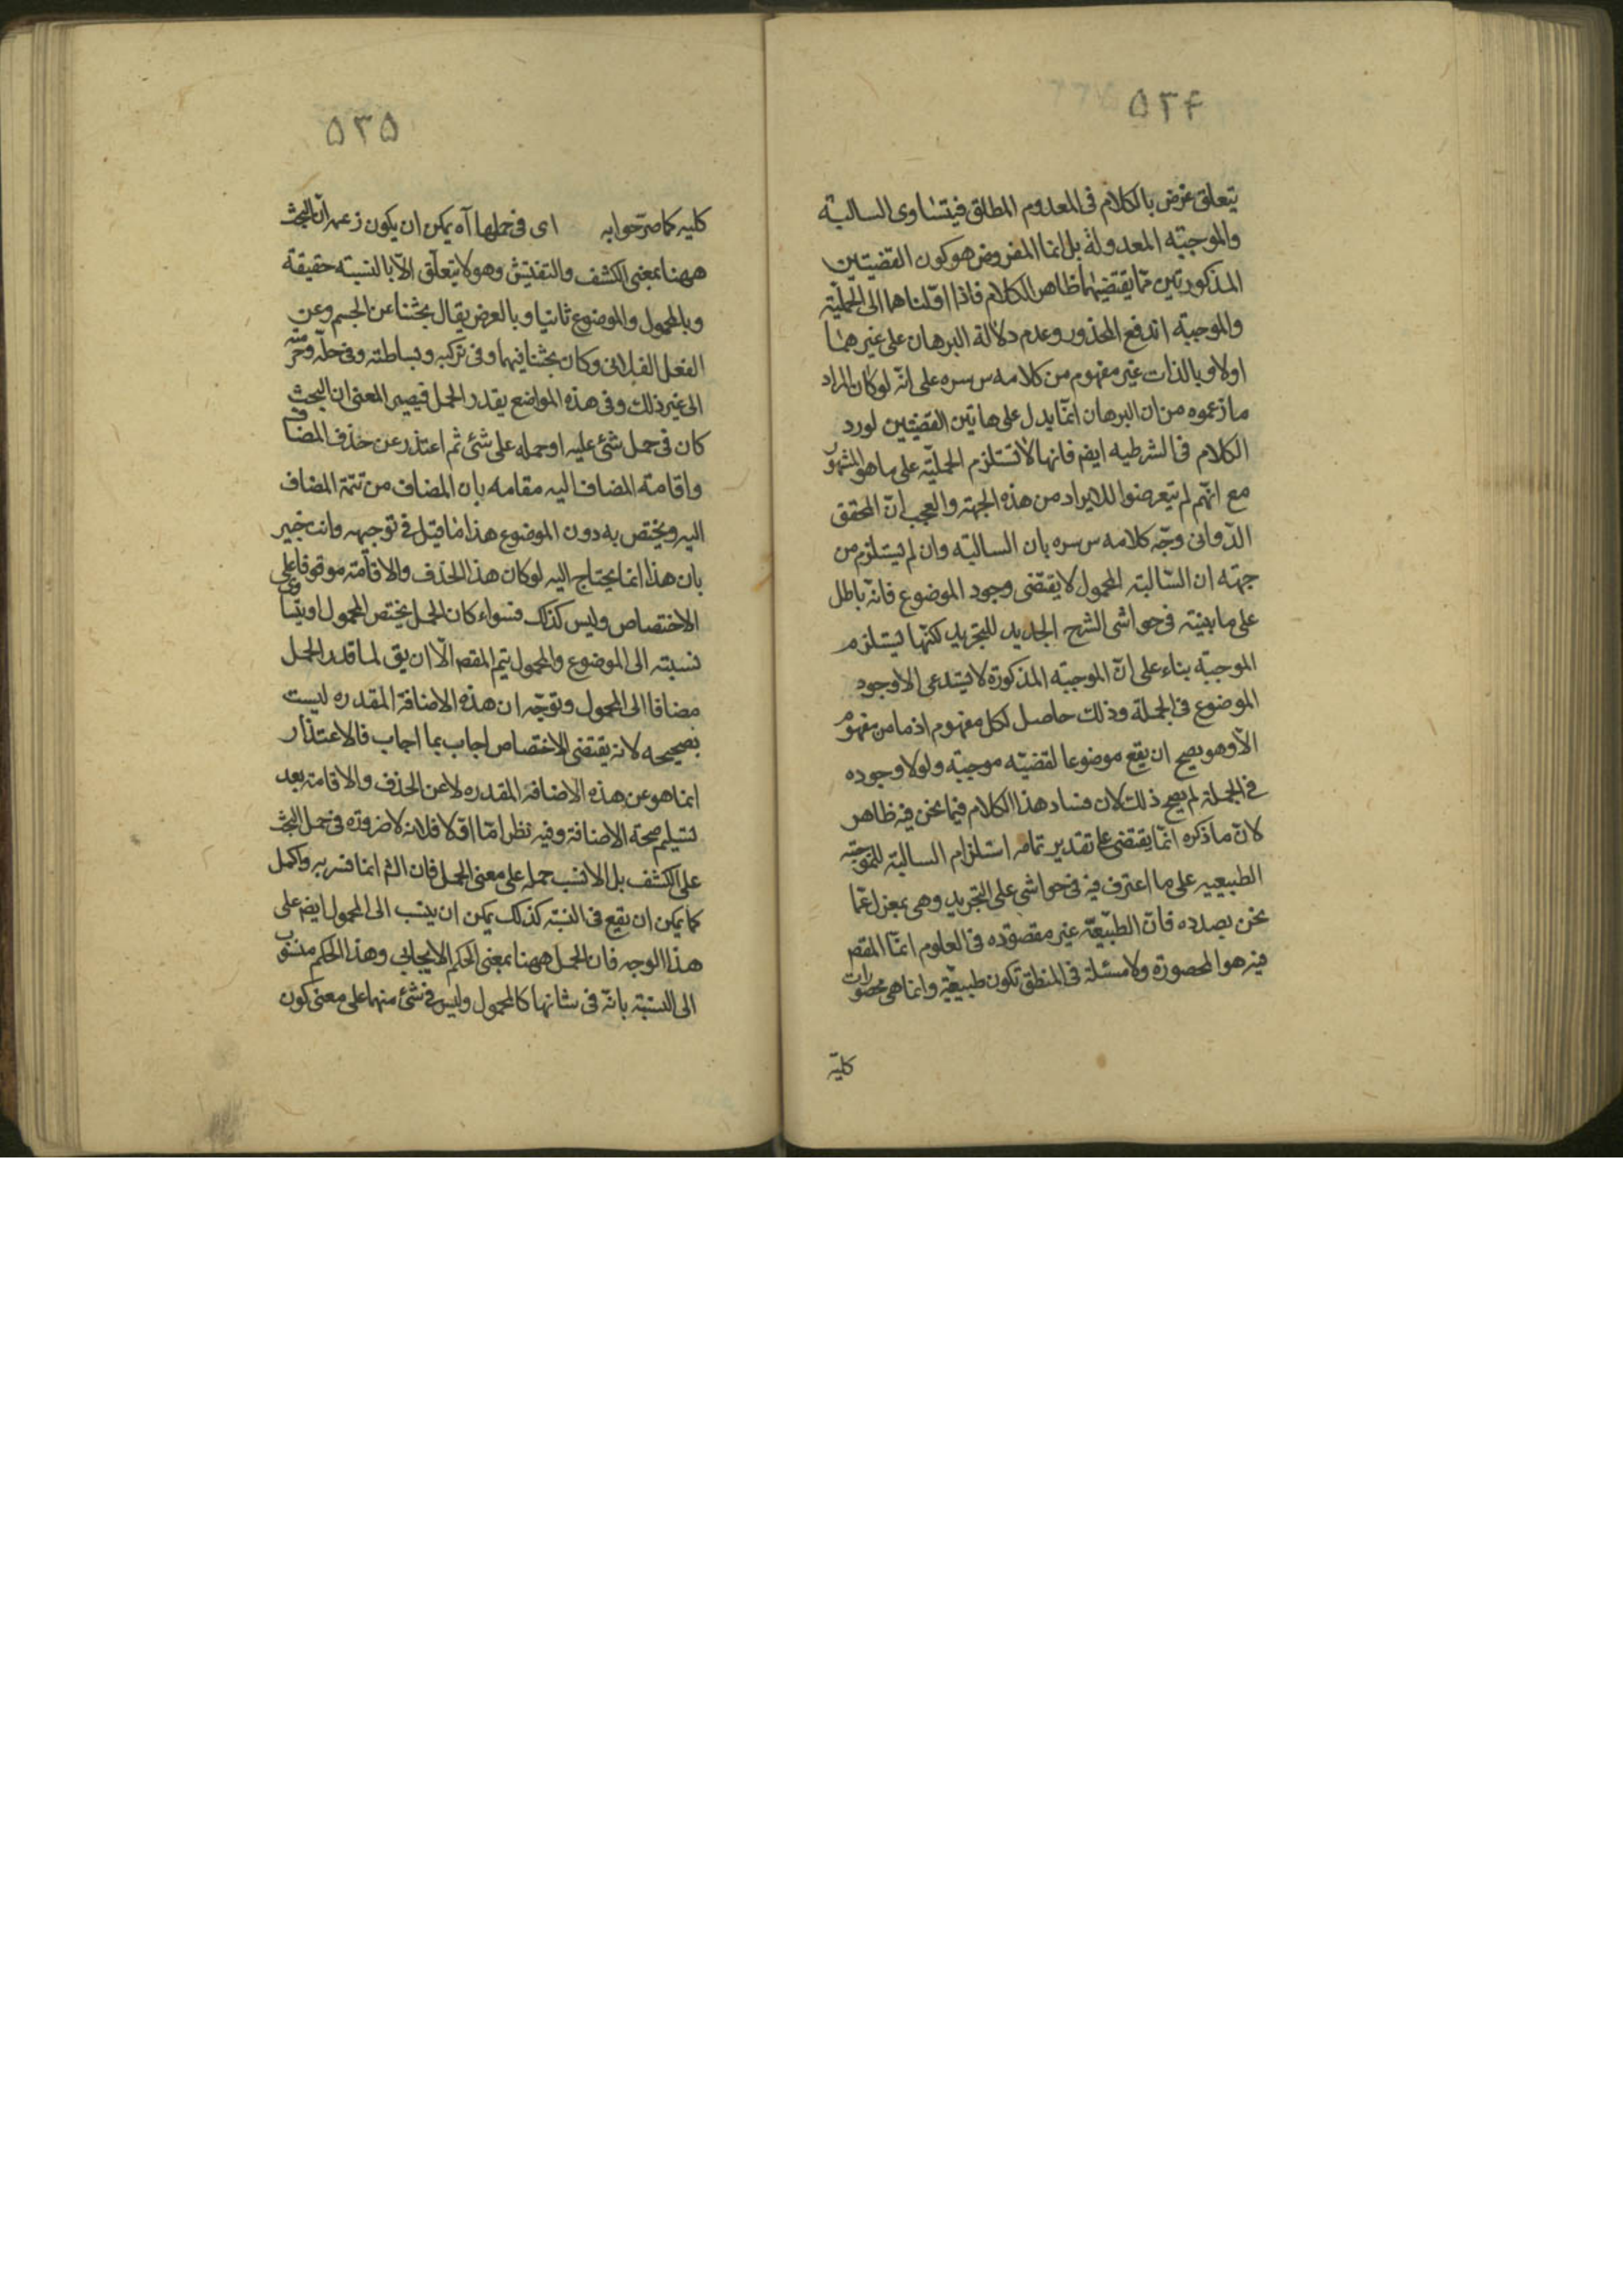 ٥٣۴
يتعلق غرض بالكلام فى المعدوم المطلق فيتساوى السالبة
والموجبة المعدولة بل انما المفروض هو كون القضيتين
المذكورتين مما يقتضيهما ظاهر الكلام فاذا اوّلناهما الى الحملية
والموجبة اندفع المحذور وعدم دلالة البرهان على غيرهما
اولا وبالذات غير مفهوم من كلامه س سره على انه لو كان المراد
ما زعموه من ان البرهان انما يدل على هاتين القضيتين لورد
الكلام فى الشرطيه ايضا فانها لا تستلزم الحملية على ما هو المشهور
مع انهم لم يتعرضوا للايراد من هذه الجهة والعجب ان المحقق
الدّوانى وجّه كلامه س سره بان السالبة وان لم يستلزم من
جهة ان السّالبة المحمول لا يقتضى وجود الموضوع فانه باطل
على ما بينته فى حواشى الشرح الجديد للتجريد لكنها يستلزم
الموجبة بناء على انّ الموجبة المذكورة لا يستدعى الا وجود
الموضوع فى الجملة وذلك حاصل لكل مفهوم اذ ما من مفهوم
الّا وهو يصح ان يقع موضوعا لقضيّة موجبة ولولا وجوده
فى الجملة لم يصح ذلك لان فساد هذا الكلام فيما نحن فيه ظاهر
لانّ ما ذكره انّما يقتضى على تقدير تمامه استلزام السالبة للموجبة
الطبيعيه على ما اعترف فيه فى حواشى على التجريد وهى بمعزل عمّا
نحن بصدده فانّ الطبيعيّة غير مقصوده فى العلوم انما المقص
فيه هو المحصورة ولا مسئلة فى المنطق تكون طبيعية وانما هى محصورات
كليّة
٥٣٥
كليه كما صرّحوا به اى فى حملها آه يمكن ان يكون زعمه انّ البحث
ههنا بمعنى الكشف والتفتيش وهو لا يتعلّق الّا بالنسبته حقيقة
وبالمحمول والموضوع ثانيا وبالعرض يقال بحثنا عن الجسم وعن
الفعل الفلانى وكان بحثنا فيهما وفى تركبه وبساطته وفى حلّه وحرمته
الى غير ذلك وفى هذه المواضع يقدر الحمل فيصير المعنى ان البحث
كان فى حمل شئ عليه او حمله على شئ ثم اعتذر عن حذف المضاف
واقامته المضاف اليه مقامه بان المضاف من تتمة المضاف
اليه ويختص به دون الموضوع هذا ما قيل فى توجيهه وانت خبير
بان هذا انما يحتاج اليه لو كان هذا الحذف والاقامة موقوفا على
الاختصاص وليس كذلك فسواء كان الحمل يختص المحمول او يتساوى
نسبته الى الموضوع والمحمول يتم المقص الّا ان يق لما قدر الحمل
مضافا الى المحمول وتوجّه ان هذه الاضافة المقدره ليست
بصحيحه لانه يقتضى الاختصاص اجاب بما اجاب فالاعتذار
انما هو عن هذه الاضافة المقدره لا عن الحذف والاقامة بعد
تسليم صحة الاضافة وفيه نظر امّا اوّلا فلانه لا ضرورة فى حمل البحث
على الكشف بل الانسب حمله على معنى الحمل فان الشم انما فسر به واكمل
كما يمكن ان يقع فى النسبة كذلك يمكن ان ينسب الى المحمول ايضا على
هذا الوجه فان الحمل ههنا بمعنى الحكم الايجابى وهذا الحكم منسوب
الى النسبة بانّه فى شانها كالمحمول وليس فى شئ منهما على معنى كون